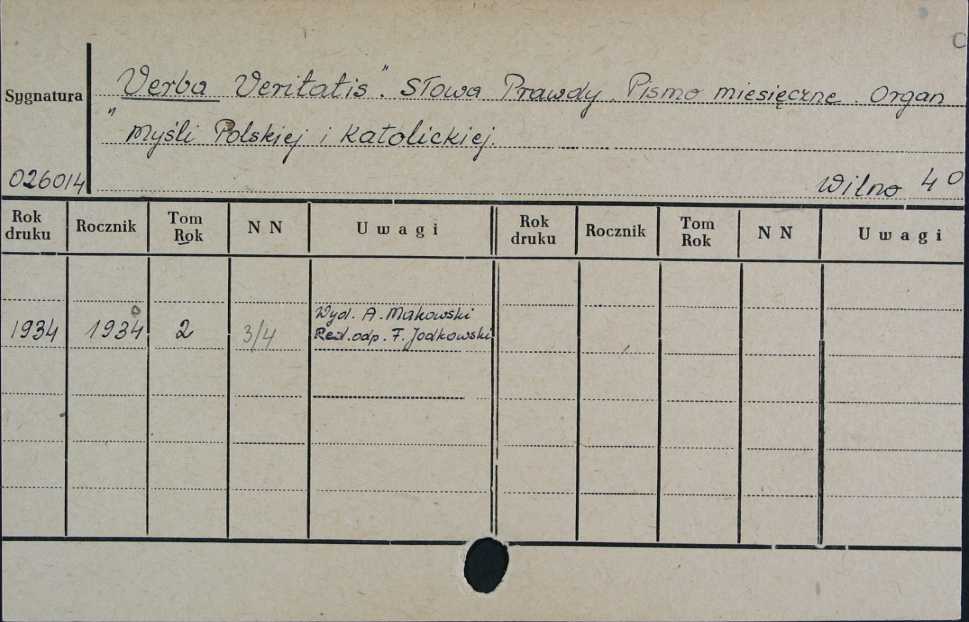 Sygnatura
Verba Veritatis". Słowa Prawdy. Pismo miesięczne. Organ
"Myśli Polskiej i Katolickiej.
026014
Wilno 4 0
Rok druku Rocznik Tom Rok N N Uwagi Rok druku Rocznik Tom Rok N N Uwagi
Wyd. A. Makowski
1934 1934 2 3/4 Red. odp. F. Jodkowski